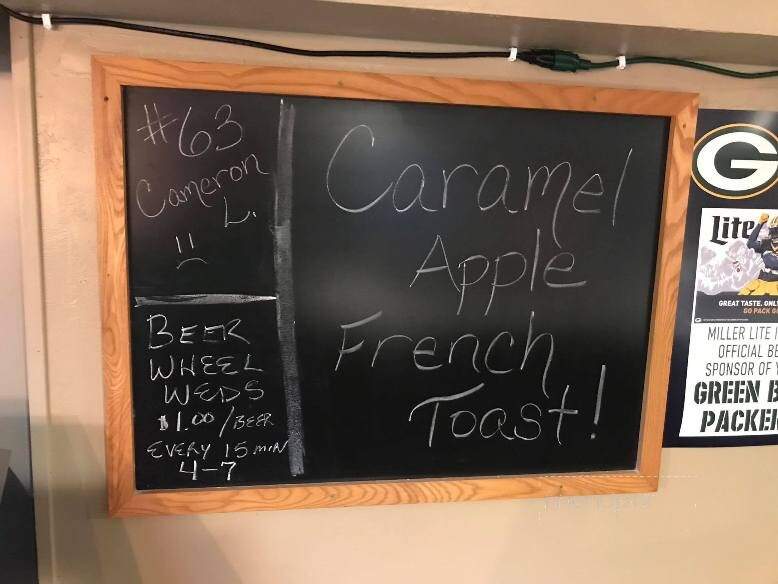 #63
Cameron
L.
BEER
WHEEL
WEDS
$1.00/BEER
EVERY 15 MIN
4-7
Caramel
Apple
French
Toast!
G
Lite
GREAT TASTE. ONL
GO PACK G
MILLER LITE I
OFFICIAL BE
SPONSOR OF Y
GREEN B
PACKER